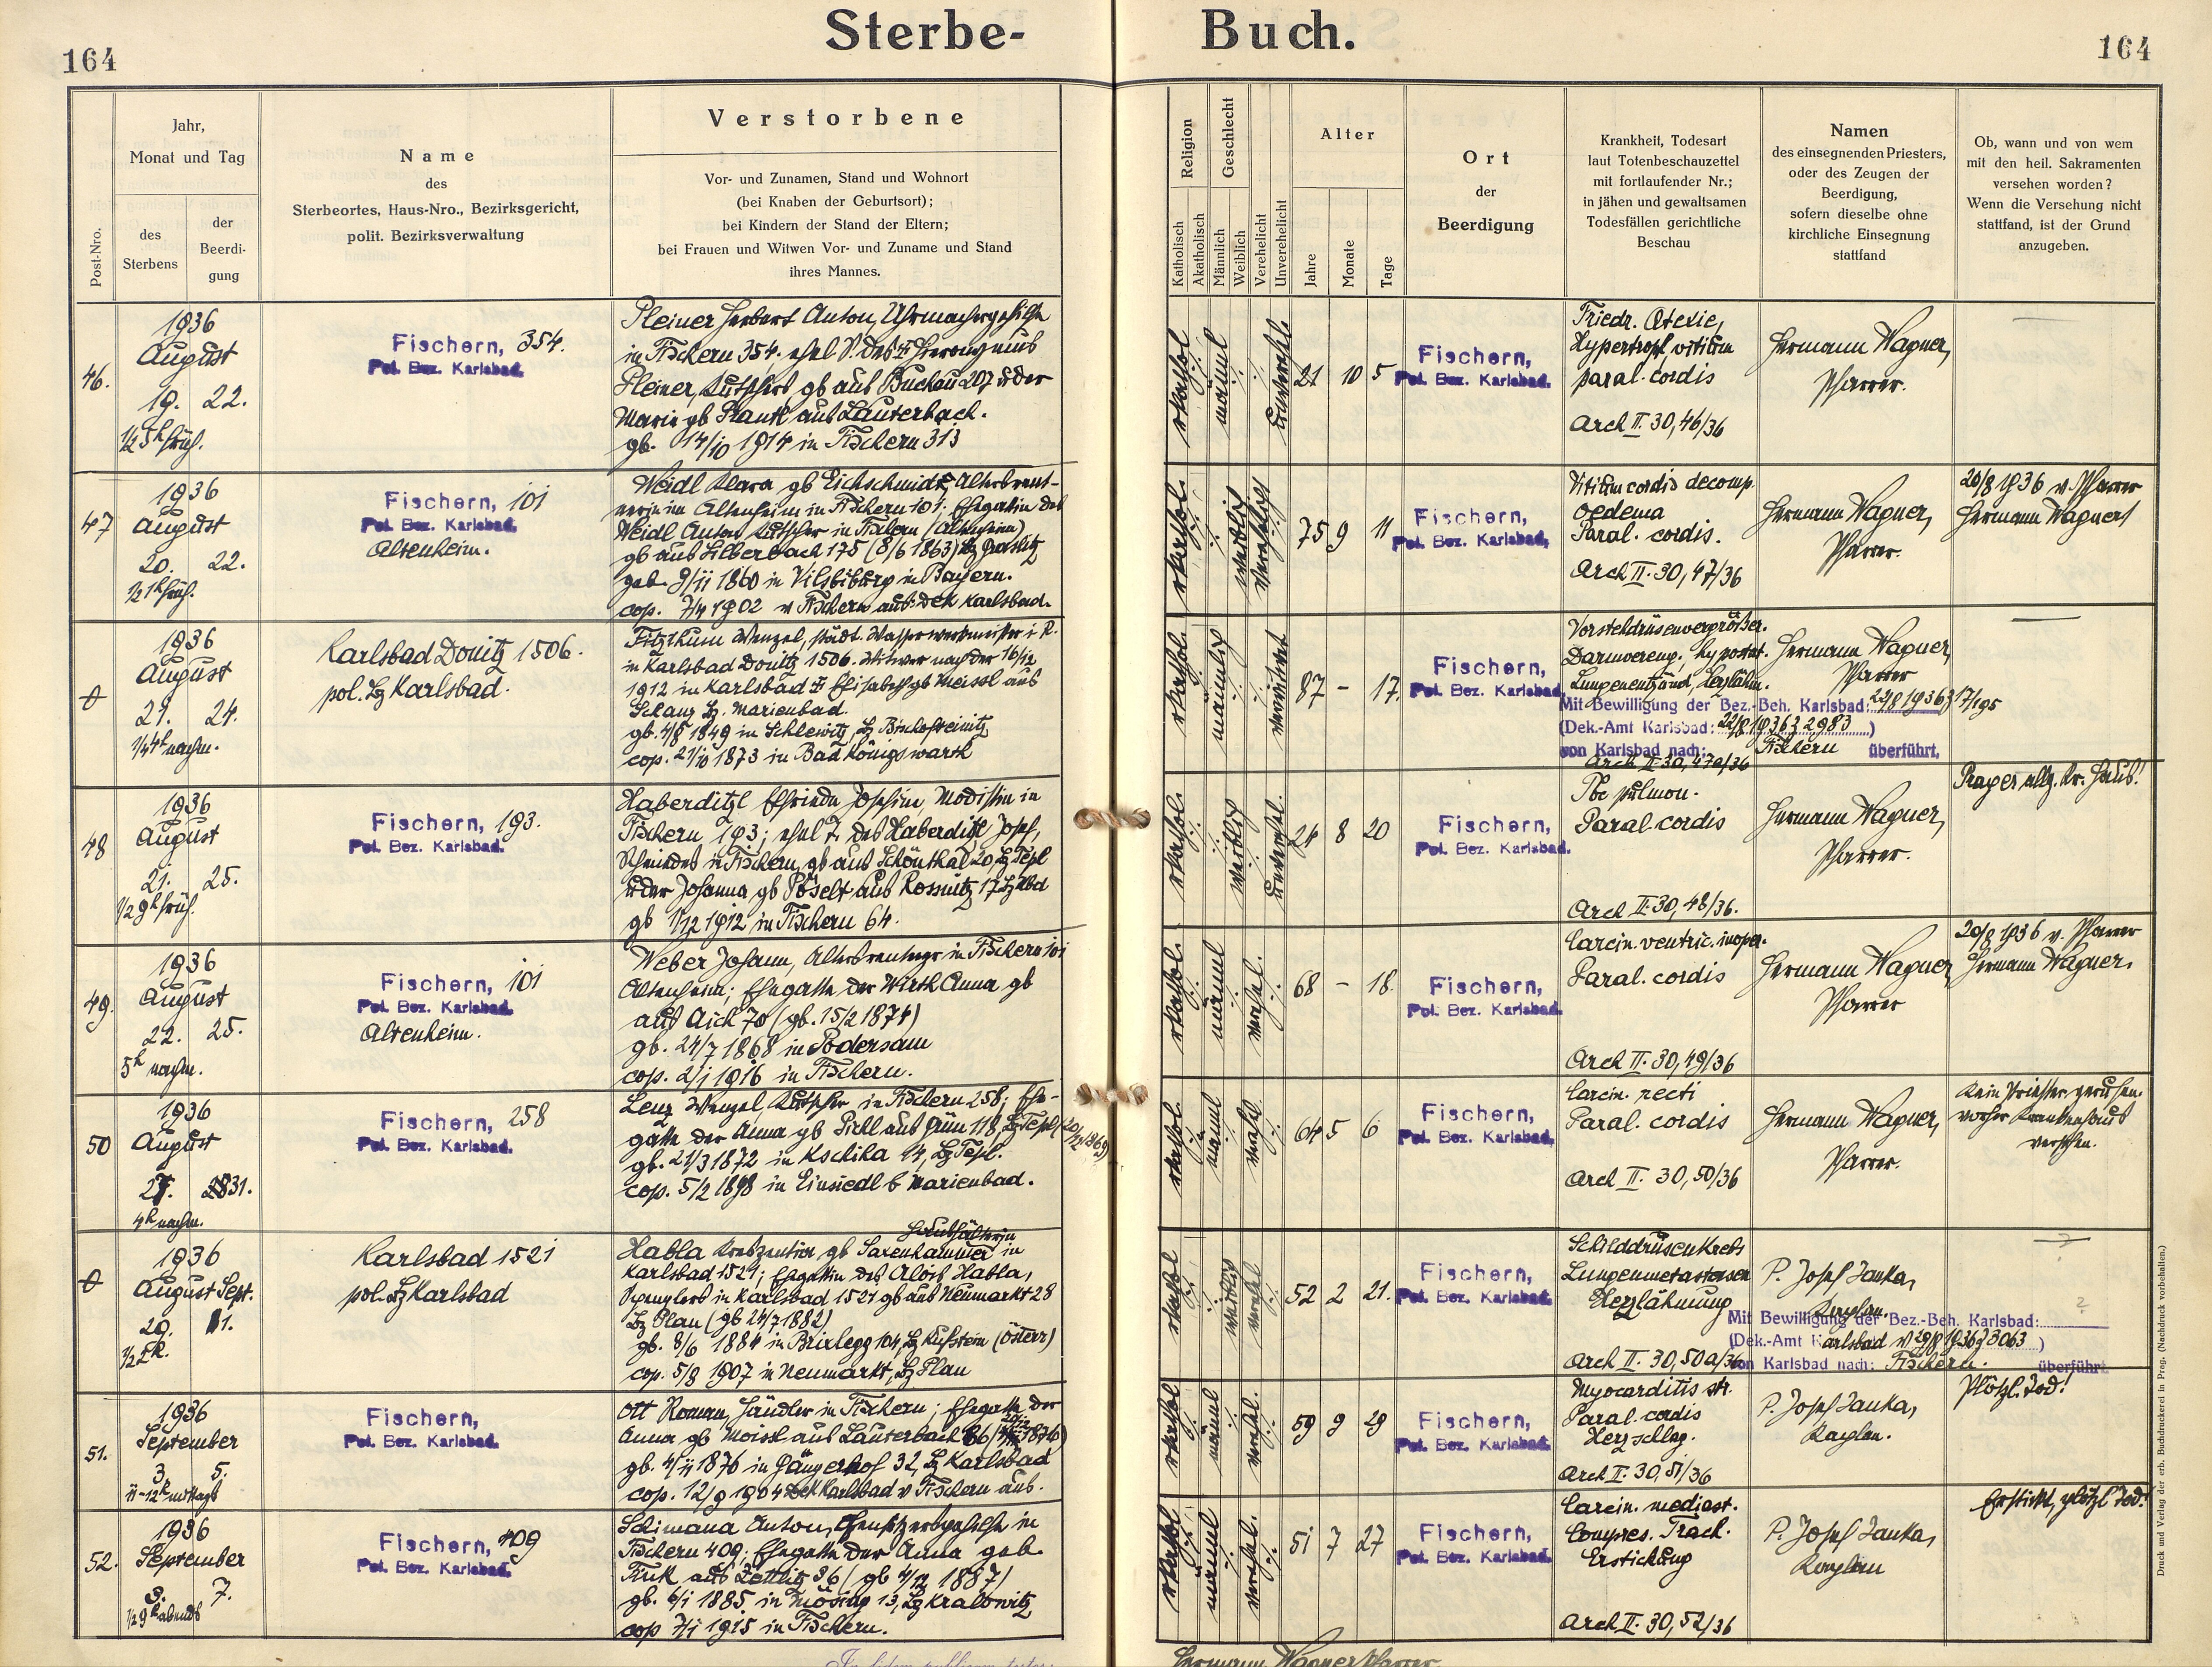 Sterbe-
Buch.
164
164
Post-Nro.
Jahr,
Monat und Tag
des
Sterbens
der
Beerdi-
gung
Name
des
Sterbeortes, Haus-Nro., Bezirksgericht,
polit. Bezirksverwaltung
Verstorbene
Vor- und Zunamen, Stand und Wohnort
(bei Knaben der Geburtsort);
bei Kindern der Stand der Eltern;
bei Frauen und Witwen Vor- und Zuname und Stand
ihres Mannes.
Religion
Katholisch
Akatholisch
Geschlecht
Männlich
Weiblich
Verehelicht
Unverehelicht
Alter
Jahre
Monate
Tage
Ort
der
Beerdigung
Krankheit, Todesart
laut Totenbeschauzettel
mit fortlaufender Nr.;
in jähen und gewaltsamen
Todesfällen gerichtliche
Beschau
Namen
des einsegnenden Priesters,
oder des Zeugen der
Beerdigung,
sofern dieselbe ohne
kirchliche Einsegnung
stattfand
Ob, wann und von wem
mit den heil. Sakramenten
versehen worden?
Wenn die Versehung nicht
stattfand, ist der Grund
anzugeben.
46.
1936
August
19. 22.
1/2 5h früh.
Fischern, 354.
Pol. Bez. Karlsbad.
Pleiner Herbert Anton, Uhrmachergehilfe
in Fischern 354. ehel S. des Hieronymus
Pleiner, Kutschers gb aus Buckau 207 u der
Marie gb Plantl aus Lauterbach.
gb. 14/10 1914 in Fischern 313
kathol männl unverehl
21 10 5
Fischern,
Pol. Bez. Karlsbad.
Hypertroph, vitium
paral. cordis
Arch II. 30, 46/36
Hermann Wagner,
Pfarrer.
47
1936
August
20. 22.
1/2 1h früh.
Fischern, 101
Pol. Bez. Karlsbad.
Altenheim.
Weidl Klara gb Eichschmidt, Altersrent-
nerin im Altenheim in Fischern 101; Ehegattin des
Weidl Anton Kutscher in Fischern (Altenheim)
gb aus Silberbach 175 (8/6 1863) Bz Graslitz
geb. 9/11 1860 in Vilsbiburg in Bayern.
cop. 7/4 1902 v Fischern aus Dek Karlsbad.
kathol. weiblich verehelicht
75 9 11
Fischern,
Pol. Bez. Karlsbad,
Vitium cordis decomp.
Oedema
Paral. cordis.
Arch II. 30, 47/36
Hermann Wagner,
Pfarrer.
20/8 1936 v. Pfarrer
Hermann Wagner
1936
August
21. 24.
1/4 4h nachm.
Karlsbad Donitz 1506.
pol. Bz Karlsbad.
Fitzthum Wenzel, städt. Wasserwerkmeister i. R.
in Karlsbad Donitz 1506. Witwer nach der 16/12
1912 in Karlsbad Elisabeth gb Meissl aus
Schanz Bz. Marienbad.
gb. 4/8 1849 in Schlewitz, Bz Bischofteinitz
cop. 21/10 1873 in Bad Königswarth
kathol. männlich verwitwet
87 – 17.
Fischern,
Pol. Bez. Karlsbad,
Vorsteldrüsenvergrößer.
Darmvereng., hypostat.
Lungenentzünd, Herzlähm.
Mit Bewilligung der Bez.-Beh. Karlsbad: 22/8 1936 z 17/195
(Dek.-Amt Karlsbad: 22/8 1936 z 2983)
von Karlsbad nach: Fischern überführt,
Arch II 30, 47a/36
Hermann Wagner,
Pfarrer
48
1936
August
21. 25.
1/2 9h früh.
Fischern, 193.
Pol. Bez. Karlsbad.
Haberditzl Elfriede Josefine Modistin in
Fischern 193; ehel T. des Haberditzl Josef,
Schmiedes in Fischern, gb aus Schönthal 20, Bz Tepl
u der Johanna gb Pöselt aus Rossnitz 17 Bz Kbd
gb 1/12 1912 in Fischern 64.
kathol. weiblich unverehel.
24 8 20
Fischern,
Pol. Bez. Karlsbad.
Tbc pulmon.
Paral. cordis
Arch II. 30, 48/36.
Hermann Wagner,
Pfarrer.
Prager allg. Kr. Haus!
49.
1936
August
22. 25.
5h nachm.
Fischern, 101
Pol. Bez. Karlsbad.
Altenheim.
Weber Johann, Altersrentner in Fischern 101
Altenheim; Ehegatte der Wirth Anna gb
aus Aich 70 (gb. 15/2 1874)
gb. 24/7 1868 in Podersam
cop. 2/1 1916 in Fischern.
kathol. männl verehel.
68 – 18.
Fischern,
Pol. Bez. Karlsbad.
Carcin. ventric. inoper.
Paral. cordis
Arch II. 30, 49/36
Hermann Wagner
Pfarrer
20/8 1936 v. Pfarrer
Hermann Wagner.
50
1936
August
27. 31.
4h nachm.
Fischern, 258
Pol. Bez. Karlsbad.
Lenz Wenzel, Kutscher in Fischern 258; Ehe-
gatte der Anna gb Pichl aus Grün 118, Bz Tepl (20/12 1869)
gb. 21/3 1872 in Kschiha 14, Bz Tepl.
cop. 5/2 1898 in Einsiedl b Marienbad.
kathol. männl verehel
64 5 6
Fischern,
Pol. Bez. Karlsbad,
Carcin. recti
Paral. cordis
Arch II. 30, 50/36
Hermann Wagner,
Pfarrer.
Kein Priester gerufen.
vorher Krankenhaus
versehen.
1936
August Sept.
29. 1.
Karlsbad 1521
pol. Bz Karlsbad
Haushälterin
Habla Kreszentia gb Saxenhammer in
Karlsbad 1521; Ehegattin des Alois Habla,
Spenglers in Karlsbad 1521 gb aus Neumarkt 28
Bz Plan (gb 24/7 1882)
gb. 8/6 1884 in Brixlegg 104, Bz Kufstein (Österr)
cop. 5/8 1907 in Neumarkt, Bz Plan
kathol weiblich verehel
52 2 21.
Fischern,
Pol. Bez. Karlsbad.
Schilddrüsenkrebs
Lungenmetastasen
Herzlähmung
Arch II. 30, 50a/36
P. Josef Janka,
Kaplan.
?
Mit Bewilligung der Bez.-Beh. Karlsbad:
(Dek.-Amt Karlsbad v 29/8 1936 z 3063)
von Karlsbad nach: Fischern. überführt
51.
1936
September
3. 5.
11-12h mittags
Fischern,
Pol. Bez. Karlsbad.
Ott Roman, Händler in Fischern; Ehegatte der
Anna gb Moissl aus Lauterbach 86
gb. 4/11 1876 in Gängerhof 32, Bz Karlsbad
cop. 12/9 1904 Dek Karlsbad v Fischern aus.
kathol männl verehel.
59 9 29
Fischern,
Pol. Bez. Karlsbad.
Myocarditis
Paral. cordis
Herzschlag.
Arch II. 30, 51/36
P. Josef Janka,
Kaplan.
Plötzl. Tod!
52.
1936
September
3. 7.
1/2 9h abends
Fischern, 409
Pol. Bez. Karlsbad.
Schimana Anton, gehilfe in
Fischern 409; Ehegatte der Anna geb.
aus Zettlitz 36 (gb 4/12 1887)
gb. 6/1 1885 in Mösing 13, Bz Kralowitz
cop 7/1 1915 in Fischern.
kathol männl verehel.
51 7 27
Fischern,
Pol. Bez. Karlsbad.
Carcin. mediast.
Compres. Trach.
Erstickung
Arch II. 30, 52/36
P. Josef Janka,
Kaplan
Erstickt, plötzl Tod!
Hermann Wagner Pfarrer
Druck und Verlag der erb. Buchdruckerei in Prag. (Nachdruck vorbehalten.)